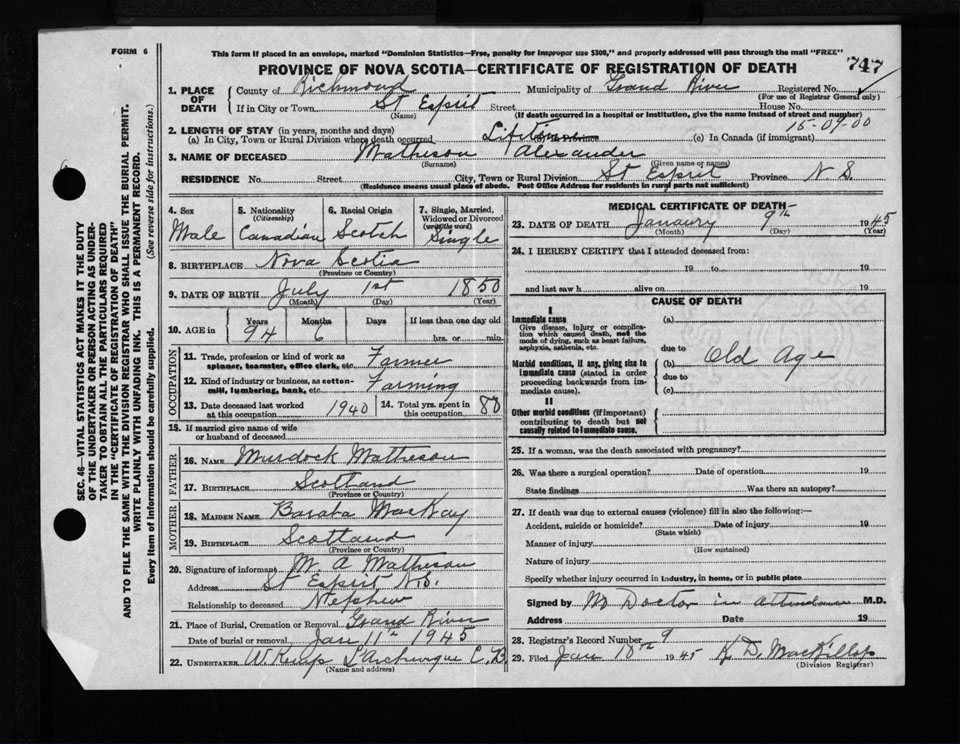 FORM 6
This form if placed in an envelope, marked "Dominion Statistics—Free, penalty for improper use $300," and properly addressed will pass through the mail "FREE"
PROVINCE OF NOVA SCOTIA—CERTIFICATE OF REGISTRATION OF DEATH
747
1. PLACE OF DEATH
County of Richmond Municipality of Grand River Registered No.
(For use of Registrar General only)
If in City or Town St Esprit Street House No.
(Name) (If death occurred in a hospital or institution, give the name instead of street and number)
15-09-00
2. LENGTH OF STAY (in years, months and days)
(a) In City, Town or Rural Division where death occurred Lifetime (b) In Province (c) In Canada (if immigrant)
3. NAME OF DECEASED Matheson Alexander
(Surname) (Given name or names)
RESIDENCE No. Street City, Town or Rural Division St Esprit Province N S.
(Residence means usual place of abode. Post Office Address for residents in rural parts not sufficient)
4. Sex
Male
5. Nationality
(Citizenship)
Canadian
6. Racial Origin
Scotch
7. Single, Married, Widowed or Divorced
(write the word)
Single
8. BIRTHPLACE Nova Scotia
(Province or Country)
9. DATE OF BIRTH July 1st 1850
(Month) (Day) (Year)
10. AGE in Years Months Days If less than one day old
94 6 hrs. or min.
OCCUPATION
11. Trade, profession or kind of work as
spinner, teamster, office clerk, etc. Farmer
12. Kind of industry or business, as cotton-
mill, lumbering, bank, etc. Farming
13. Date deceased last worked
at this occupation 1940
14. Total yrs. spent in
this occupation 80
15. If married give name of wife
or husband of deceased
FATHER
16. NAME Murdock Matheson
17. BIRTHPLACE Scotland
(Province or Country)
MOTHER
18. MAIDEN NAME Barata MacKay
19. BIRTHPLACE Scotland
(Province or Country)
20. Signature of informant M. A Matheson
Address St Esprit N.S.
Relationship to deceased Nephew
21. Place of Burial, Cremation or Removal Grand River
Date of burial or removal Jan 11th 1945
22. UNDERTAKER W. Kemp L'Archeveque C. B
(Name and address)
MEDICAL CERTIFICATE OF DEATH
23. DATE OF DEATH Janaury 9th 1945
(Month) (Day) (Year)
24. I HEREBY CERTIFY that I attended deceased from:
19 to 19
and last saw h alive on 19
CAUSE OF DEATH
I
Immediate cause (a)
Give disease, injury or complica-
tion which caused death, not the
mode of dying, such as heart failure,
asphyxia, asthenia, etc.
due to
Morbid conditions, if any, giving rise to
immediate cause (stated in order
proceeding backwards from im-
mediate cause).
(b) Old Age
due to
(c)
II
Other morbid conditions (if important)
contributing to death but not
causally related to immediate cause.
25. If a woman, was the death associated with pregnancy?
26. Was there a surgical operation? Date of operation 19
State findings Was there an autopsy?
27. If death was due to external causes (violence) fill in also the following:—
Accident, suicide or homicide? Date of injury 19
(State which)
Manner of injury
(How sustained)
Nature of injury
Specify whether injury occurred in industry, in home, or in public place
Signed by No Doctor in attendance M.D.
Address Date 19
28. Registrar's Record Number 9
29. Filed Jan 18th 1945 K. D. MacKillop
(Division Registrar)
SEC. 46—VITAL STATISTICS ACT MAKES IT THE DUTY
OF THE UNDERTAKER OR PERSON ACTING AS UNDER-
TAKER TO OBTAIN ALL THE PARTICULARS REQUIRED
IN THE "CERTIFICATE OF REGISTRATION OF DEATH"
AND TO FILE THE SAME WITH THE DIVISION REGISTRAR WHO SHALL ISSUE THE BURIAL PERMIT.
WRITE PLAINLY WITH UNFADING INK. THIS IS A PERMANENT RECORD.
Every item of information should be carefully supplied. (See reverse side for instructions.)